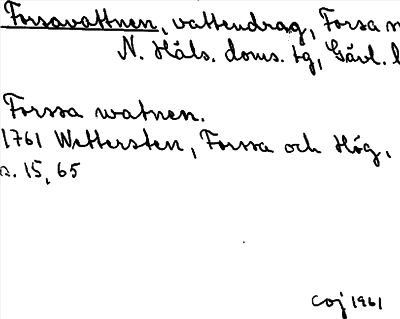 Forsavattnen, vattendrag, Forsa
N. Häls. doms. tg, Gävl.
Forssa watnen.
1761 Wettersten, Forssa och Hög,
s. 15, 65
coj 1961